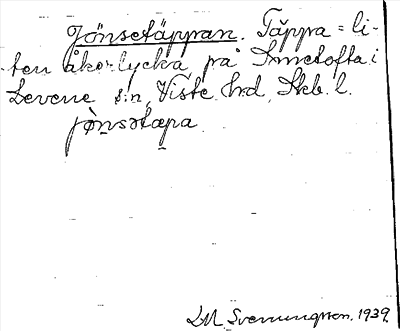 Jönsetäppan. Täppa = li-
ten åkerlycka på Smetofta i
Levene s:n, Viste hrd, Skb. l.
jö̀nsətæpa
LM Svenungsson. 1939.